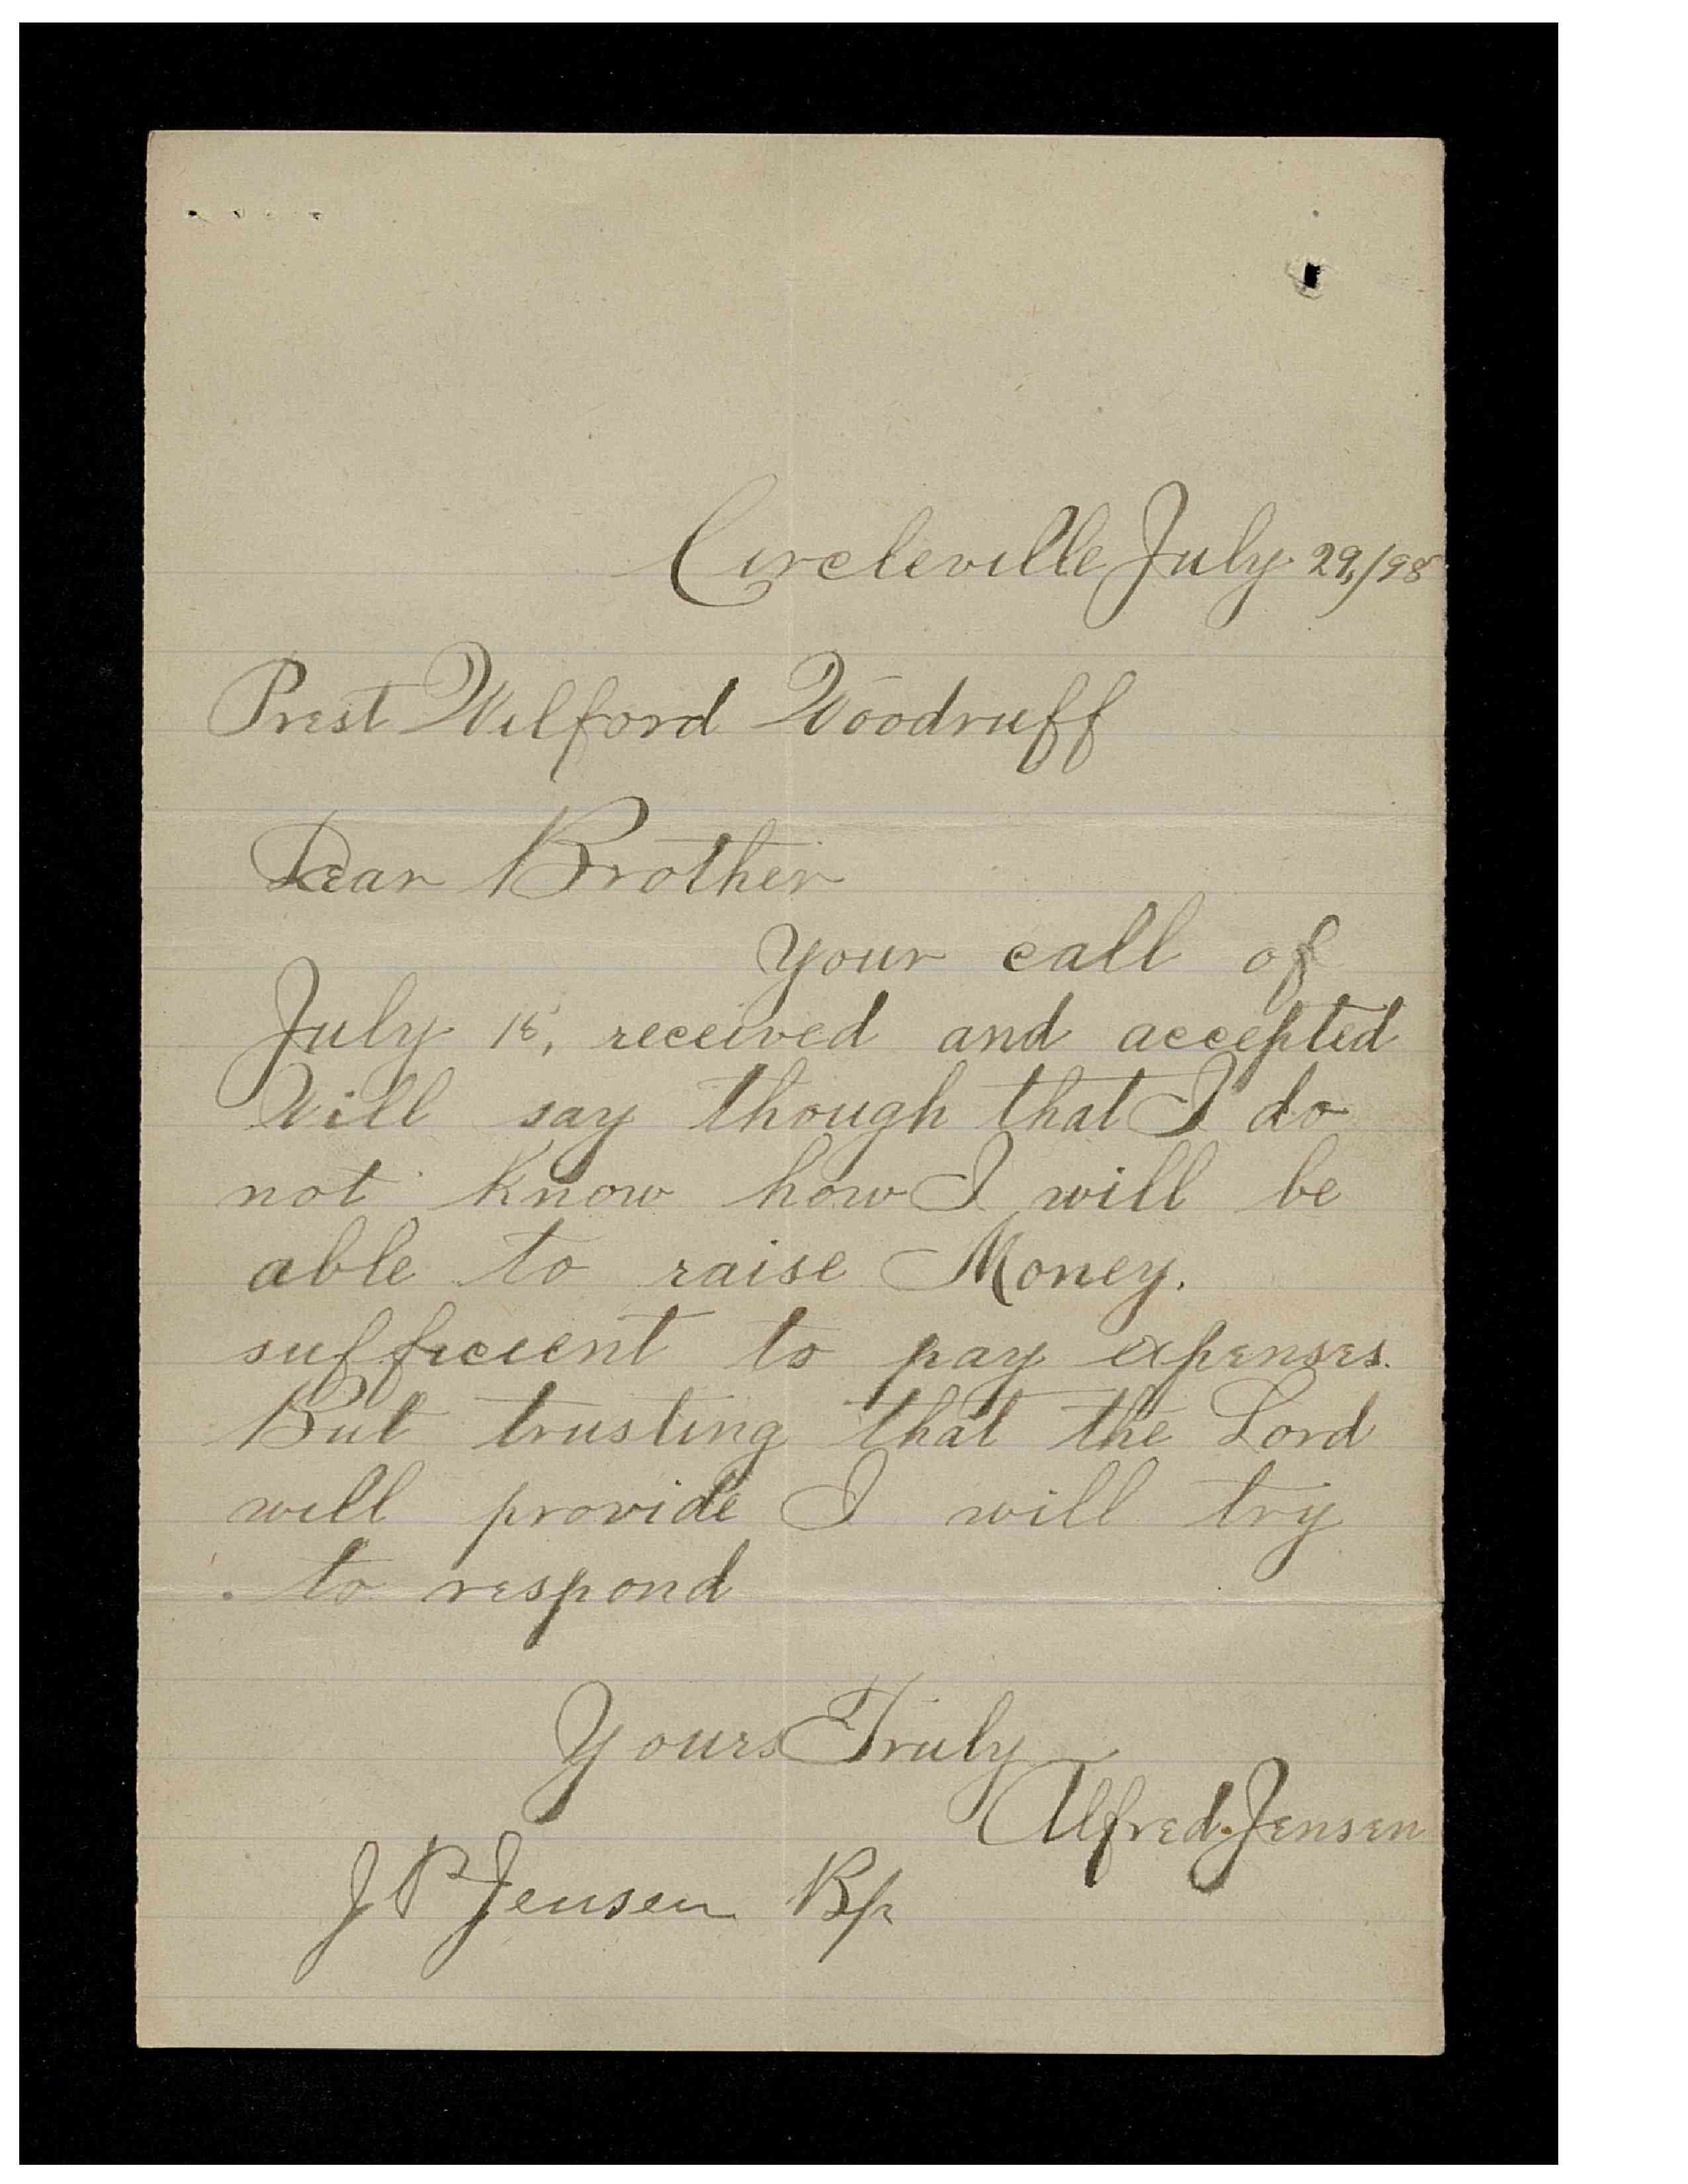 Circleville July 29,/98
Prest Wilford Woodruff
Dear Brother
Your call of
July 18, received and accepted
Will say though that I do
not know how I will be
able to raise Money.
sufficient to pay expenses.
But trusting that the Lord
will provide I will try
to respond
Yours Truly
Alfred Jensen
J P Jensen Bp